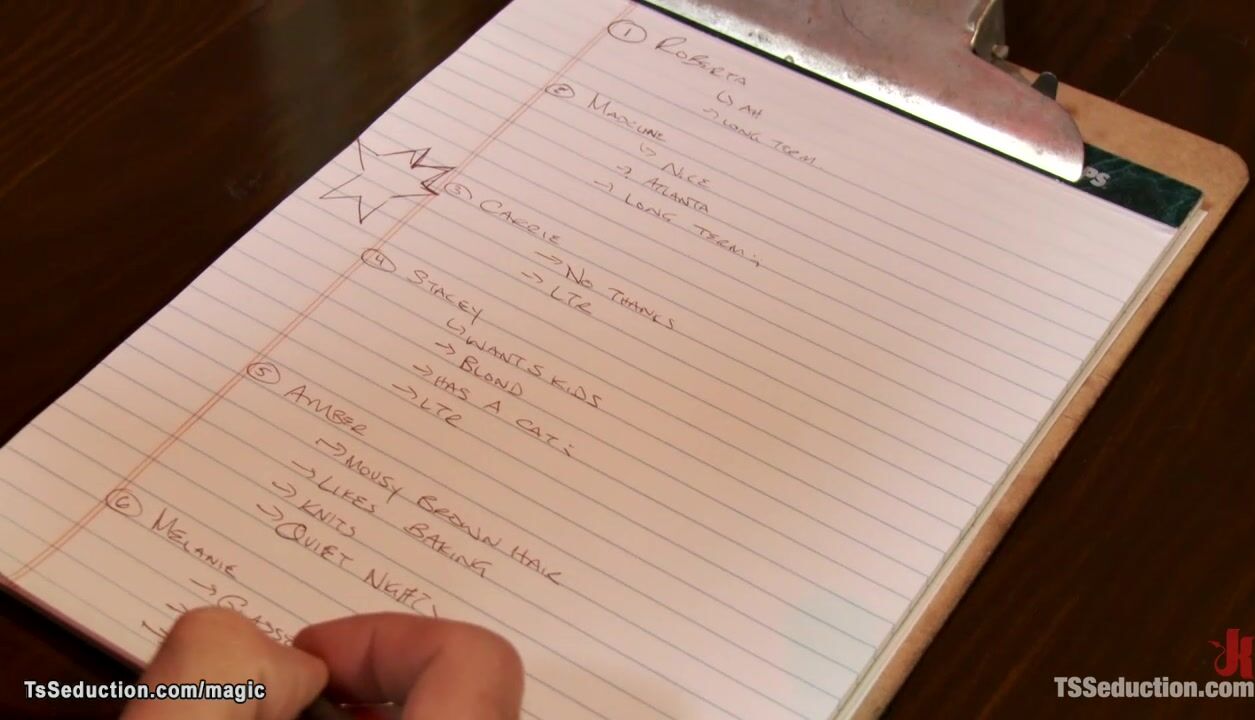 ① ROBERTA
↳ AH
→ LONG TERM
② MADELINE
↳ NICE
→ ATLANTA
→ LONG TERM
③ CARRIE
→ NO THANKS
→ LTR
④ STACEY
↳ WANTS KIDS
→ BLOND
→ HAS A CAT
→ LTR
⑤ AMBER
→ MOUSY BROWN HAIR
→ LIKES BAKING
→ KNITS
→ QUIET NIGHTS
⑥ MELANIE
TsSeduction.com/magic
TSSeduction.com